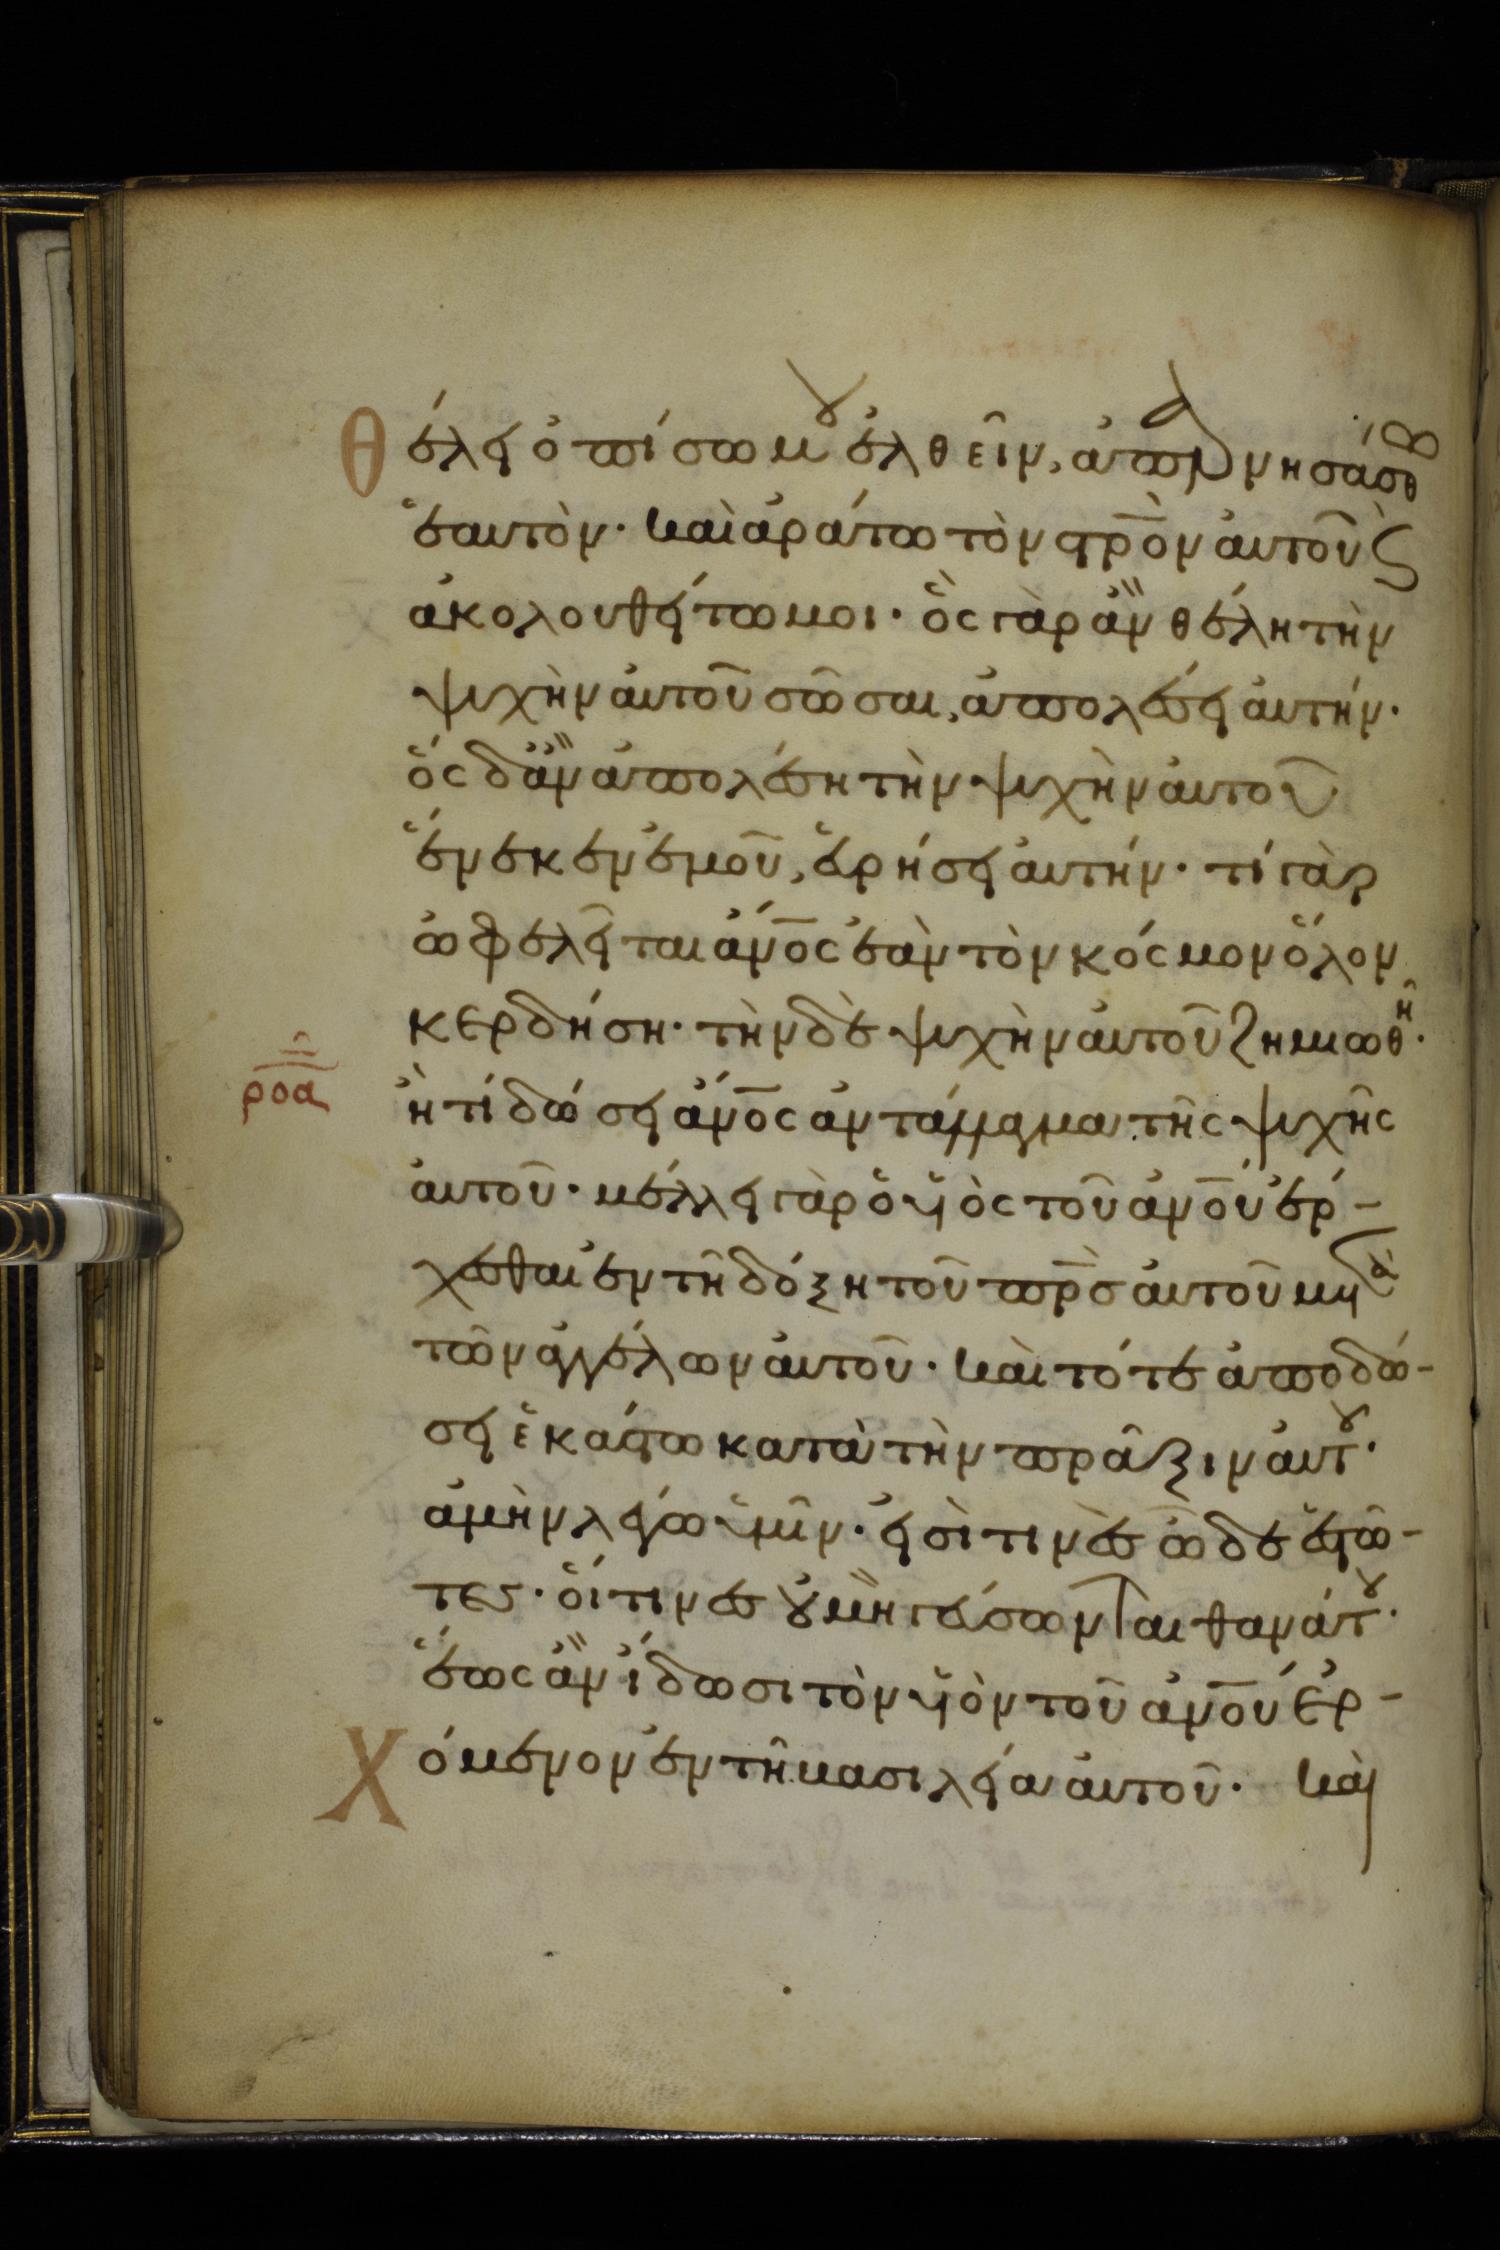 θέλει ὀπίσω μου ἐλθεῖν, ἀπαρνησάσθω
ἑαυτὸν· καὶ ἀράτω τὸν στρ̅ὸν αὐτοῦ ϗ
ἀκολουθείτω μοι· ὃς γὰρ ἂν θέλη τὴν
ψυχὴν αὐτοῦ σῶσαι, ἀπολέσει αὐτήν·
ὃς δ ἂν ἀπολέση τὴν ψυχὴν αὐτοῦ
ἕνεκεν ἐμοῦ, εὑρήσει αὐτήν· τί γὰρ
ὠφελεῖται ἄν̅ος ἐὰν τὸν κόσμον ὅλον
κερδήση· τὴν δὲ ψυχὴν αὐτοῦ ζημιωθῆ·
ροα
ἢ τί δώσει ἄν̅ος ἀντάλλαγμα τῆς ψυχῆς
αὐτοῦ· μέλλει γὰρ ὁ υἱὸς τοῦ ἀν̅ου ἔρ-
χεσθαι ἐν τῆ δόξη τοῦ πρ̅σ αὐτοῦ μετὰ
τῶν ἀγγέλων αὐτοῦ· καὶ τότε ἀποδώ-
σει ἑκάστω κατὰ τὴν πρᾶξιν αὐτοῦ·
ἀμὴν λέγω ὑμῖν· εἰσὶ τινὲς ὧδε ἑστῶ-
τες· οἵτινες οὐ μὴ γεύσωνται θανάτου·
ἕως ἂν ἴδωσι τὸν υἱὸν τοῦ ἀν̅ου ἐρ-
χόμενον ἐν τῆ βασιλεία αὐτοῦ· καὶ